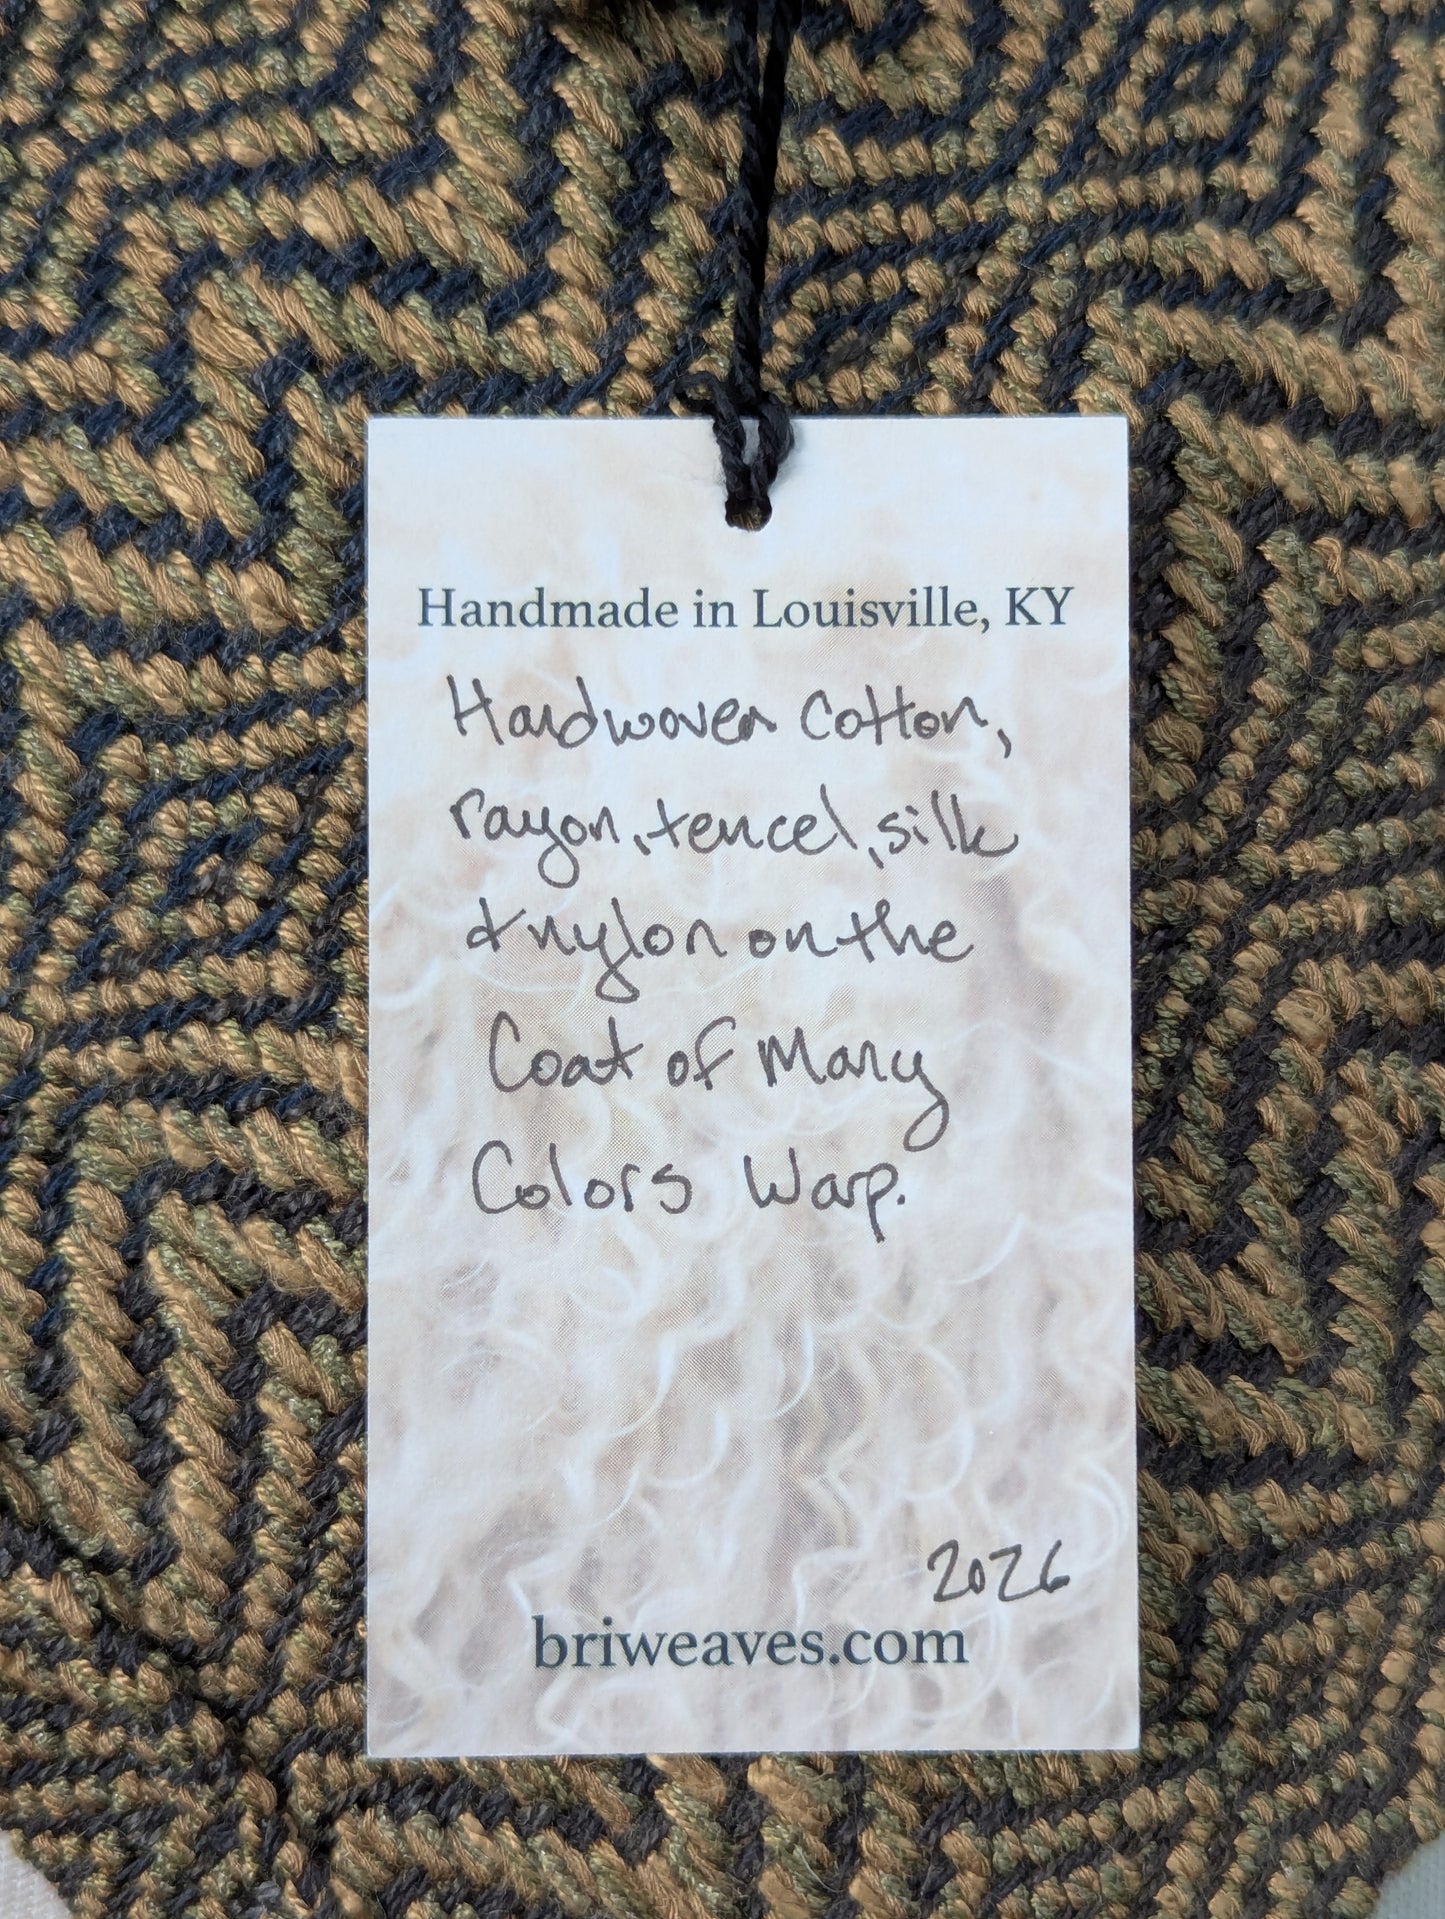 Handmade in Louisville, KY
Handwoven Cotton,
rayon, tencel, silk
& nylon on the
Coat of Many
Colors Warp.
2026
briweaves.com